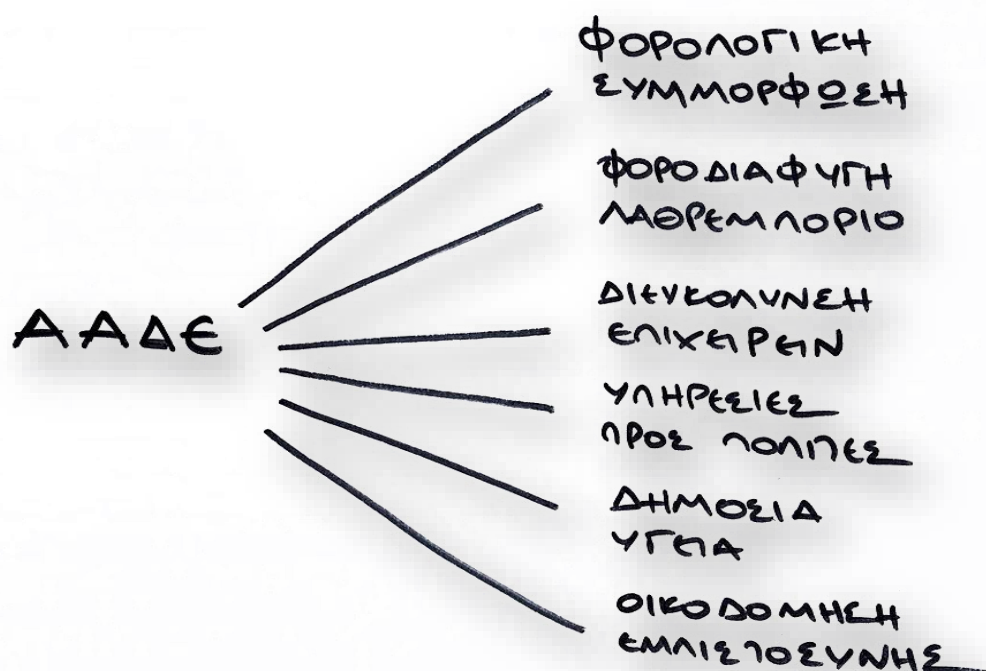 ΑΑΔΕ
ΦΟΡΟΛΟΓΙΚΗ
ΣΥΜΜΟΡΦΩΣΗ
ΦΟΡΟΔΙΑΦΥΓΗ
ΛΑΘΡΕΜΠΟΡΙΟ
ΔΙΕΥΚΟΛΥΝΣΗ
ΕΠΙΧΕΙΡΕΙΝ
ΥΠΗΡΕΣΙΕΣ
ΠΡΟΣ ΠΟΛΙΤΕΣ
ΔΗΜΟΣΙΑ
ΥΓΕΙΑ
ΟΙΚΟΔΟΜΗΣΗ
ΕΜΠΙΣΤΟΣΥΝΗΣ